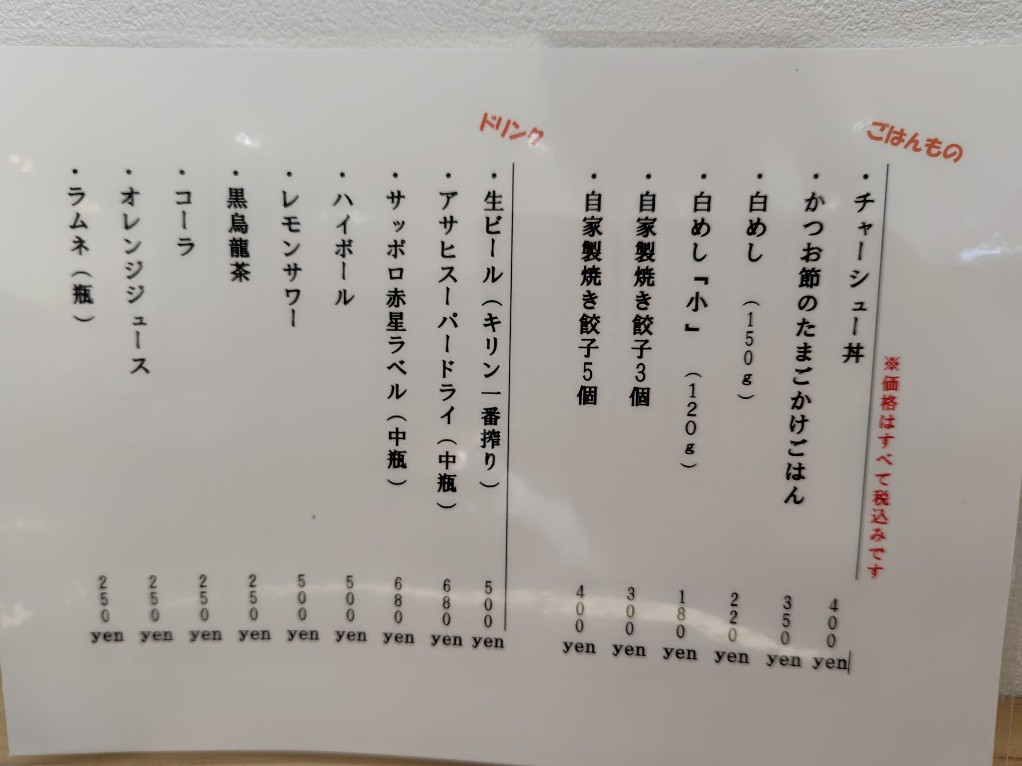 ごはんもの
※価格はすべて税込みです
・チャーシュー丼 400yen
・かつお節のたまごかけごはん 350yen
・白めし （150g） 220yen
・白めし『小』 （120g） 180yen
・自家製焼き餃子3個 300yen
・自家製焼き餃子5個 400yen
ドリンク
・生ビール（キリン一番搾り） 500yen
・アサヒスーパードライ（中瓶） 680yen
・サッポロ赤星ラベル（中瓶） 680yen
・ハイボール 500yen
・レモンサワー 500yen
・黒烏龍茶 250yen
・コーラ 250yen
・オレンジジュース 250yen
・ラムネ（瓶） 250yen